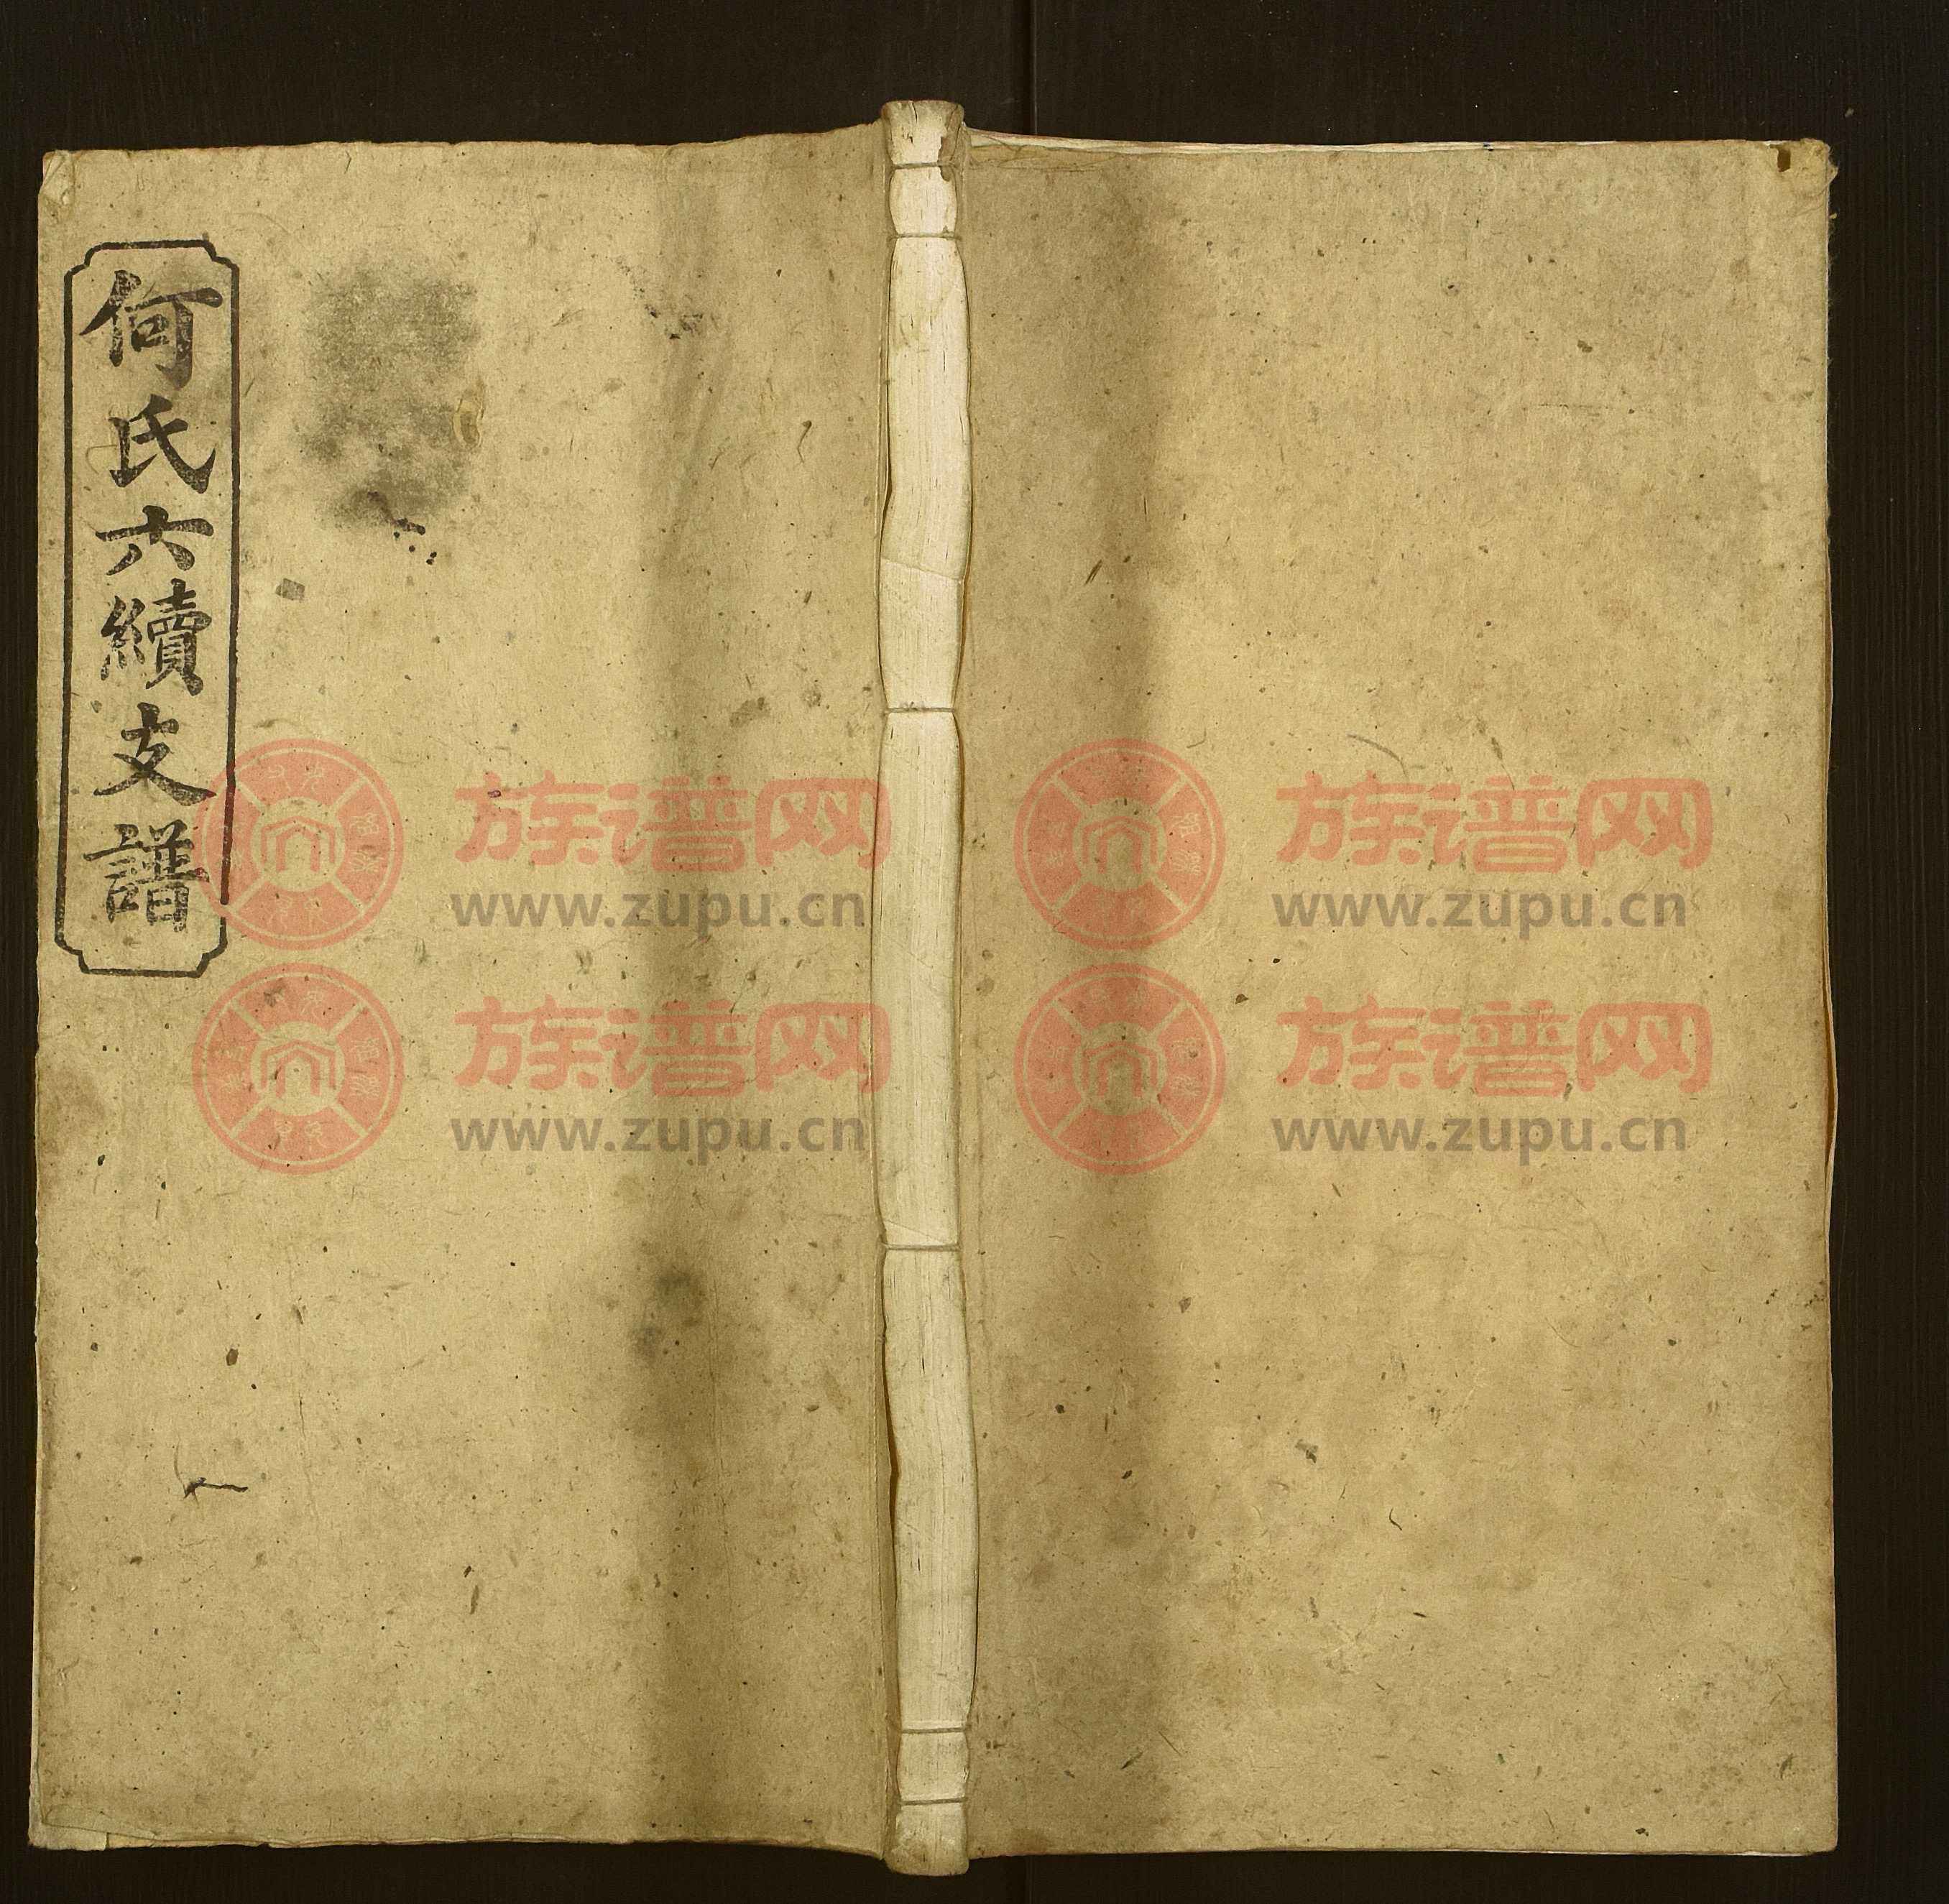 何氏六續支譜
族谱网
www.zupu.cn
族谱网
www.zupu.cn
族谱网
www.zupu.cn
族谱网
www.zupu.cn